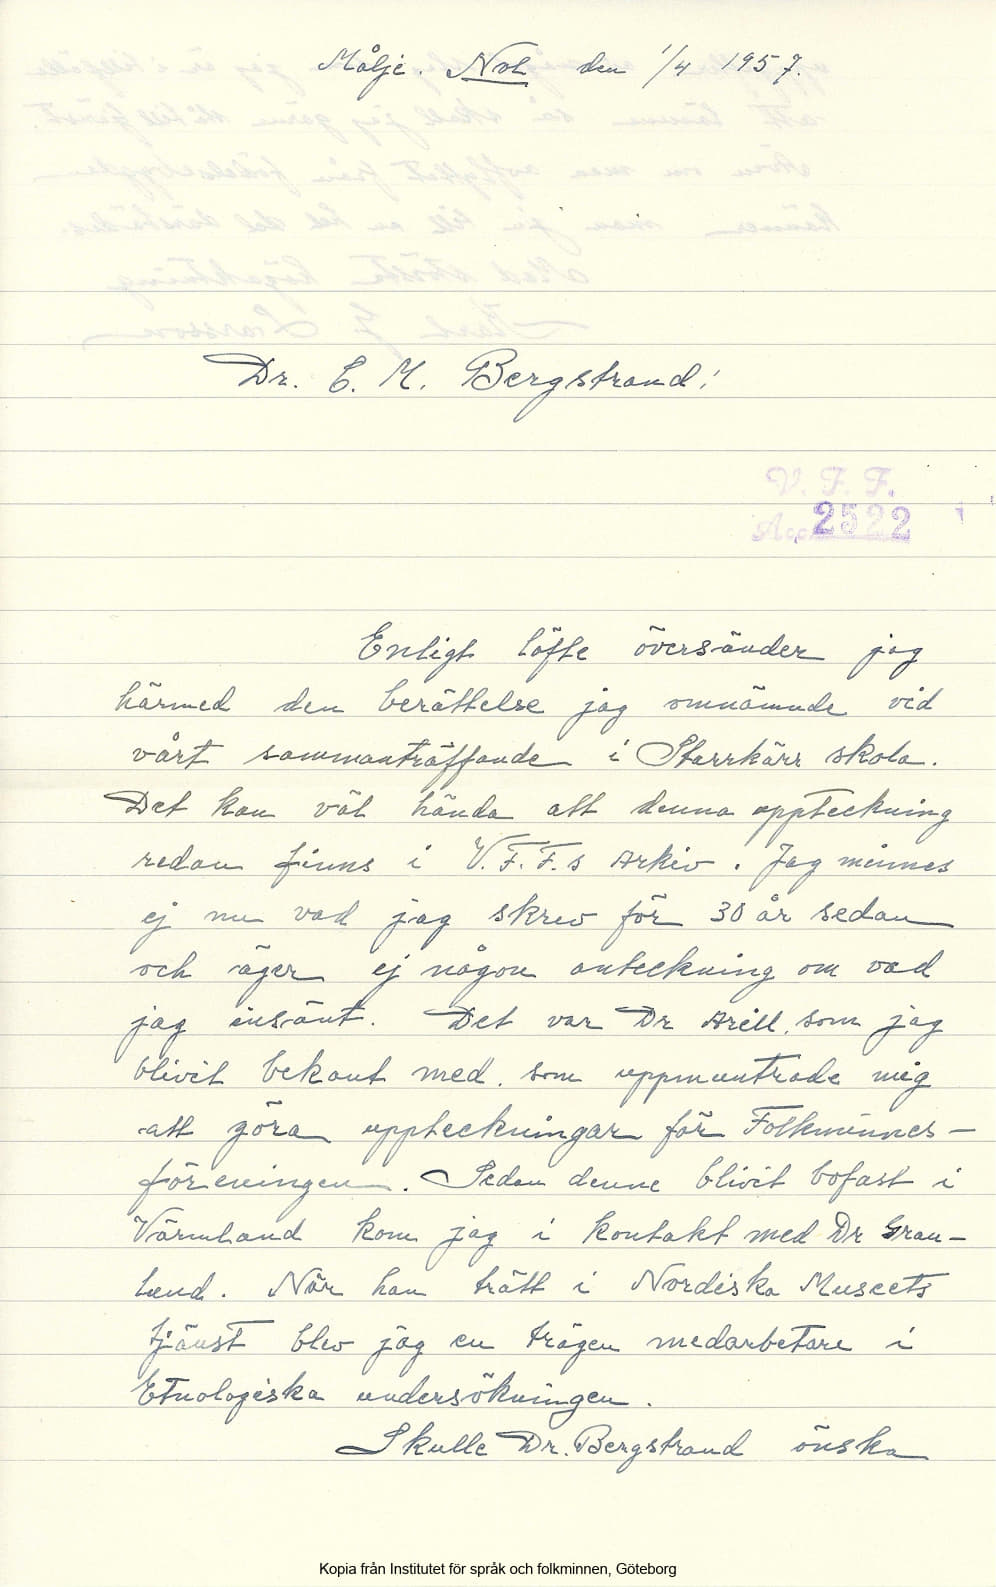 Målje. Nol den 1/4 1957.
Dr. E. M. Bergstrand!
V. F. F.
Acc. 2522
Enligt löfte översänder jag
härmed den berättelse jag omnämnde vid
vårt sammanträffande i Starrkärr skola.
Det kan väl hända att denna uppteckning
redan finns i V.F.F.s Arkiv. Jag minnes
ej nu vad jag skrev för 30 år sedan
och äger ej någon anteckning om vad
jag insänt. Det var Dr Arill, som jag
blivit bekant med, som uppmuntrade mig
att göra uppteckningar för Folkminnes-
föreningen. Sedan denne blivit bofast i
Värmland kom jag i kontakt med Dr Gran-
lund. När han trätt i Nordiska Museets
tjänst blev jag en trägen medarbetare i
Etnologiska undersökningen.
Skulle Dr. Bergstrand önska
Kopia från Institutet för språk och folkminnen, Göteborg